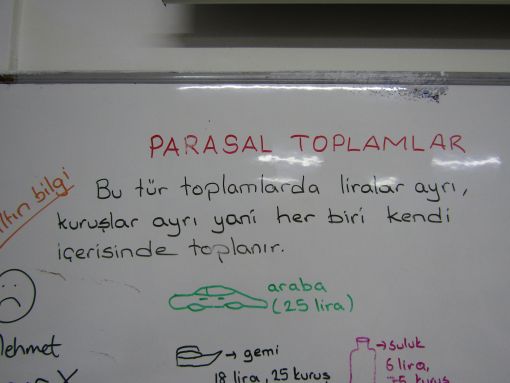 PARASAL TOPLAMLAR
Altın bilgi
Bu tür toplamlarda liralar ayrı,
kuruşlar ayrı yani her biri kendi
içerisinde toplanır.
araba
(25 lira)
Mehmet
→ gemi
18 lira, 25 kuruş
→ suluk
6 lira,
75 kuruş